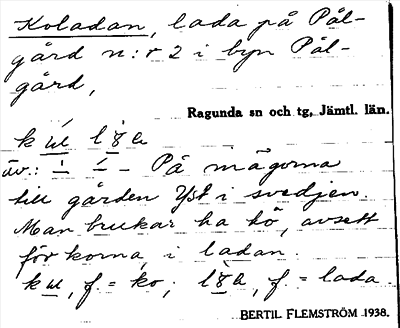 Koladan, lada på Pål-
gård n:r 2 i byn Pål-
gård,
Ragunda sn och tg, Jämtl. län.
äv.: – På mågorna
till gården Yst i svedjen.
Man brukar ha hö, avsett
för korna, i ladan.
f. = ko; f. = lada.
BERTIL FLEMSTRÖM 1938.